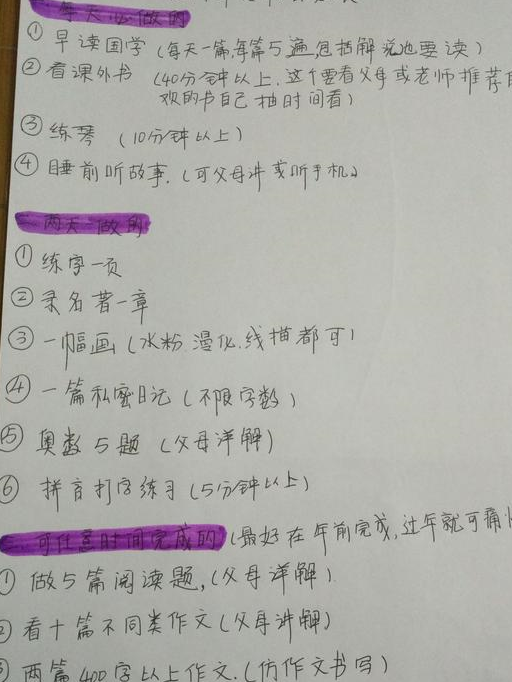 每天必做的
① 早读国学（每天一篇,每篇5遍,包括解说也要读）
② 看课外书（40分钟以上,这个要看父母或老师推荐
欢的书自己抽时间看）
③ 练琴（10分钟以上）
④ 睡前听故事.（可父母讲或听手机）
两天一做的
① 练字一页
② 录名著一章
③ 一幅画（水粉.漫化.线描都可）
④ 一篇私密日记（不限字数）
⑤ 奥数5题（父母详解）
⑥ 拼音打字练习（5分钟以上）
可任意时间完成的（最好在年前完成,过年就可痛
① 做5篇阅读题,（父母详解）
② 看十篇不同类作文（父母讲解）
③ 两篇400字以上作文.（仿作文书写）